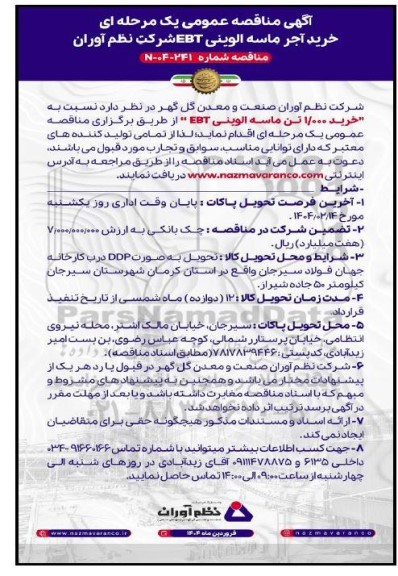 آگهی مناقصه عمومی یک مرحله ای
خرید آجر ماسه الوینی EBTشرکت نظم آوران
مناقصه شماره N-04-241
شرکت نظم آوران صنعت و معدن گل گهر در نظر دارد نسبت به
"خرید 1/000 تن ماسه الوینی EBT " از طریق برگزاری مناقصه
عمومی یک مرحله ای اقدام نماید، لذا از تمامی تولید کننده های
معتبر که دارای توانایی مناسب، سوابق و تجارب مورد قبول می باشند،
دعوت به عمل می آید اسناد مناقصه را از طریق مراجعه به آدرس
اینترنتی www.nazmavaranco.com دریافت نمایند.
-شرایط
1- آخرین فرصت تحویل پاکات : پایان وقت اداری روز یکشنبه
مورخ 1404/02/14 .
2- تضمین شرکت در مناقصه : چک بانکی به ارزش 7/000/000/000
(هفت میلیارد) ریال.
3- شرایط و محل تحویل کالا : تحویل به صورت DDP درب کارخانه
جهان فولاد سیرجان واقع در استان کرمان شهرستان سیرجان
کیلومتر 50 جاده شیراز.
4- مدت زمان تحویل کالا : 12 (دوازده) ماه شمسی از تاریخ تنفیذ
قرارداد.
5- محل تحویل پاکات : سیرجان، خیابان مالک اشتر، محله نیروی
انتظامی، خیابان پرستار شمالی، کوچه عباس رضوی، بن بست امیر
زیدآبادی، کدپستی : 7817839446 (مطابق اسناد مناقصه).
6- شرکت نظم آوران صنعت و معدن گل گهر در قبول یا رد هر یک از
پیشنهادات مختار می باشد و همچنین به پیشنهاد های مشروط و
مبهم که با اسناد مناقصه مغایرت داشته باشد و یا بعد از مهلت مقرر
در آگهی برسد ترتیب اثر داده نخواهد شد.
7- ارائه اسناد و مستندات مذکور هیچگونه حقی برای متقاضیان
ایجاد نمی کند.
8- جهت کسب اطلاعات بیشتر میتوانید با شماره تماس 91660166-034
داخلی 6135 و 09111478875 آقای زیدآبادی در روزهای شنبه الی
چهارشنبه از ساعت 09:00 الی 14:00 تماس حاصل نمایید.
نظم آوران
www.nazmavaranco.ir
فروردین ماه 1404
nazmavaranco